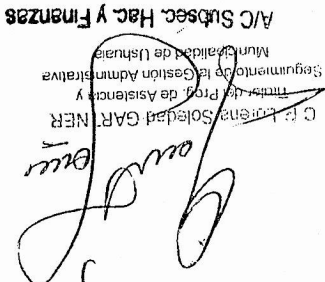 C.P. Lorena Soledad GARTNER
Titular del Prog. de Asistencia y
Seguimiento de la Gestión Administrativa
Municipalidad de Ushuaia
A/C Subsec. Hac. y Finanzas